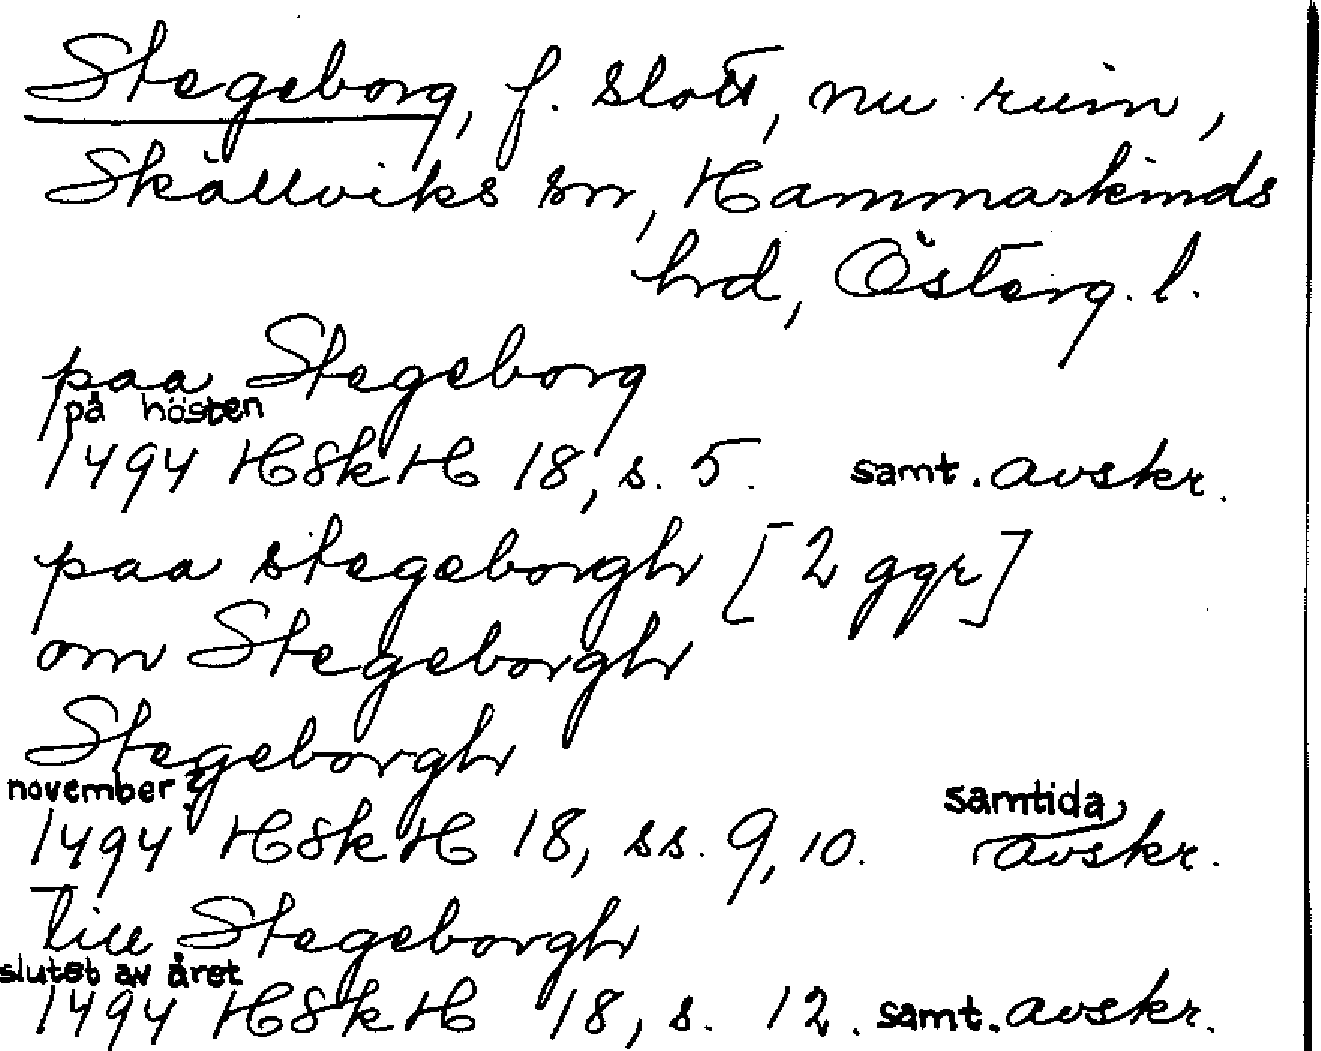 Stegeborg, f. slott, nu ruin,
Skällviks sn, Hammarkinds
hrd, Österg. l.
paa Stegeborg
på hösten
1494 HSkH 18, s. 5. samt. avskr.
paa stegeborgh [2 ggr]
om Stegeborgh
Stegeborgh
november?
1494 HSkH 18, ss. 9, 10. samtida avskr.
till Stegeborgh
slutet av året
1494 HSkH 18, s. 12. samt. avskr.